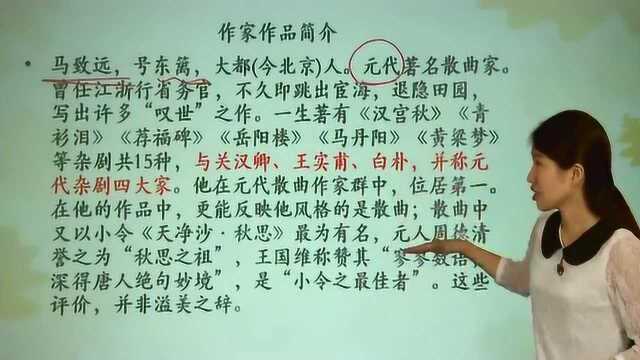 作家作品简介
• 马致远，号东篱，大都(今北京)人。元代著名散曲家。
曾任江浙行省务官，不久即跳出宦海，退隐田园，
写出许多“叹世”之作。一生著有《汉宫秋》《青
衫泪》《荐福碑》《岳阳楼》《马丹阳》《黄粱梦》
等杂剧共15种，与关汉卿、王实甫、白朴，并称元
代杂剧四大家。他在元代散曲作家群中，位居第一。
在他的作品中，更能反映他风格的是散曲；散曲中
又以小令《天净沙·秋思》最为有名，元人周德清
誉之为“秋思之祖”，王国维称赞其“寥寥数语，
深得唐人绝句妙境”，是“小令之最佳者”。这些
评价，并非溢美之辞。